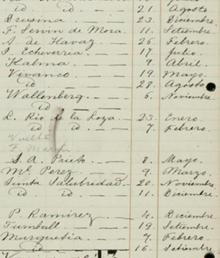 id id — 21 Agosto
Brisoma — 23 Diciembre
F. Servin de Mora. 11 Setiembre
A. de Haray — 26 Febrero
J. Echeverria — 17 Julio
Kalma — 9 Abril
Vivanco — 19 Mayo
id — 28 Agosto
Wallenberg — 6 Noviembre
id id
R. Rio de la Loza. 23 Enero
id id — 7 Febrero
S. A. Prieto — 8 Mayo
Mc Perez — 9 Marzo
Junta Salubridad. 20 Noviembre
id id — 11 Diciembre
P. Ramirez — 4 Diciembre
Turnbull — 19 Setiembre
Murguetia — 7 Febrero
id — 16 Setiembre